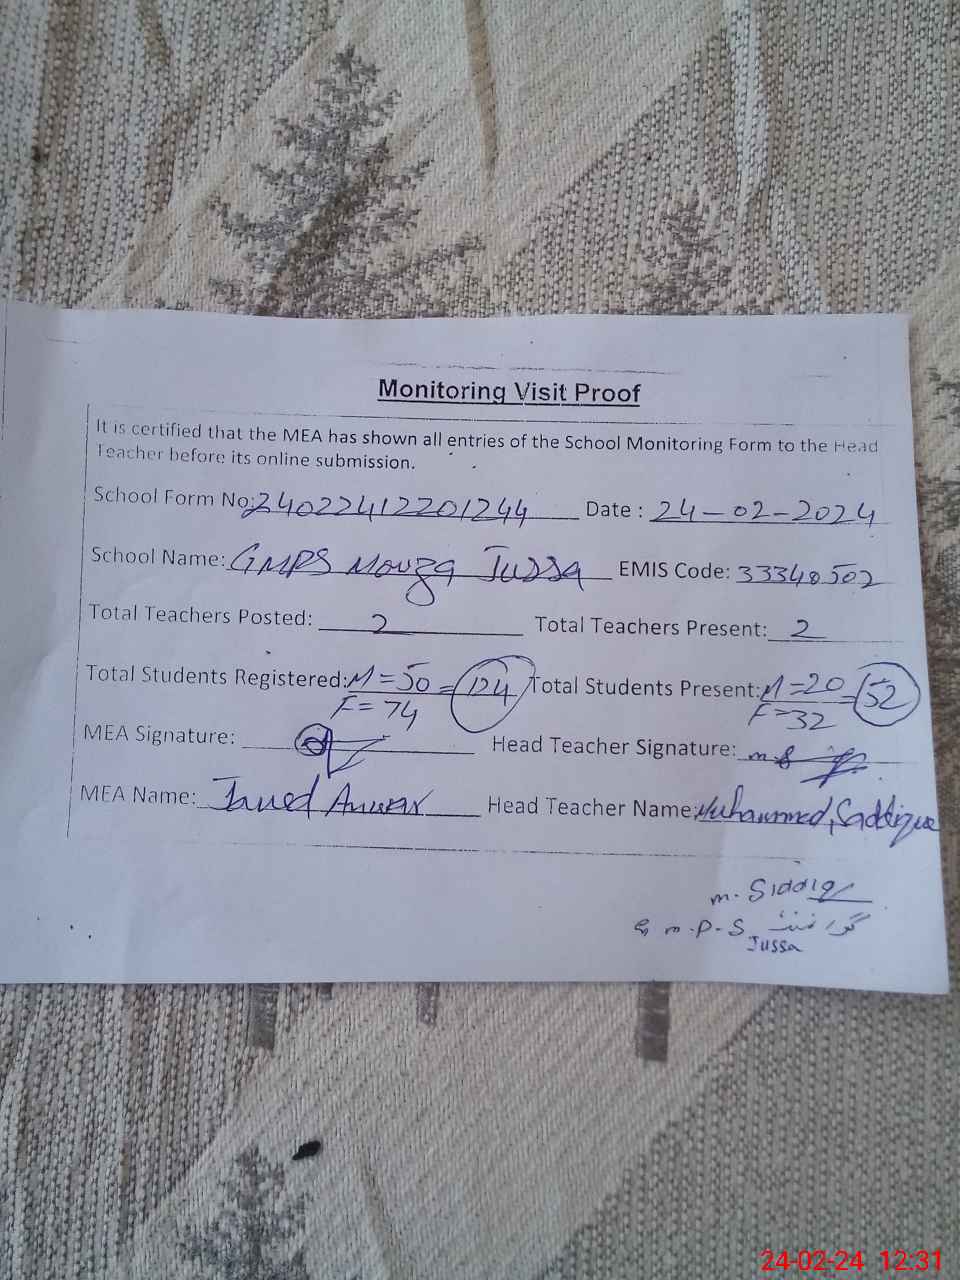 Monitoring Visit Proof
It is certified that the MEA has shown all entries of the School Monitoring Form to the Head
Teacher before its online submission.
School Form No: 24022412201244 Date : 24-02-2024
School Name: GMPS Mouza Jussa EMIS Code: 33340502
Total Teachers Posted: 2 Total Teachers Present: 2
Total Students Registered: M=50 = 124 Total Students Present: M=20 = 52
F=74 F=32
MEA Signature: Head Teacher Signature: m.S
MEA Name: Javed Anwar Head Teacher Name: Muhammed, Saddique
m. Siddiq
G m.P-S
Jussa
24-02-24 12:31